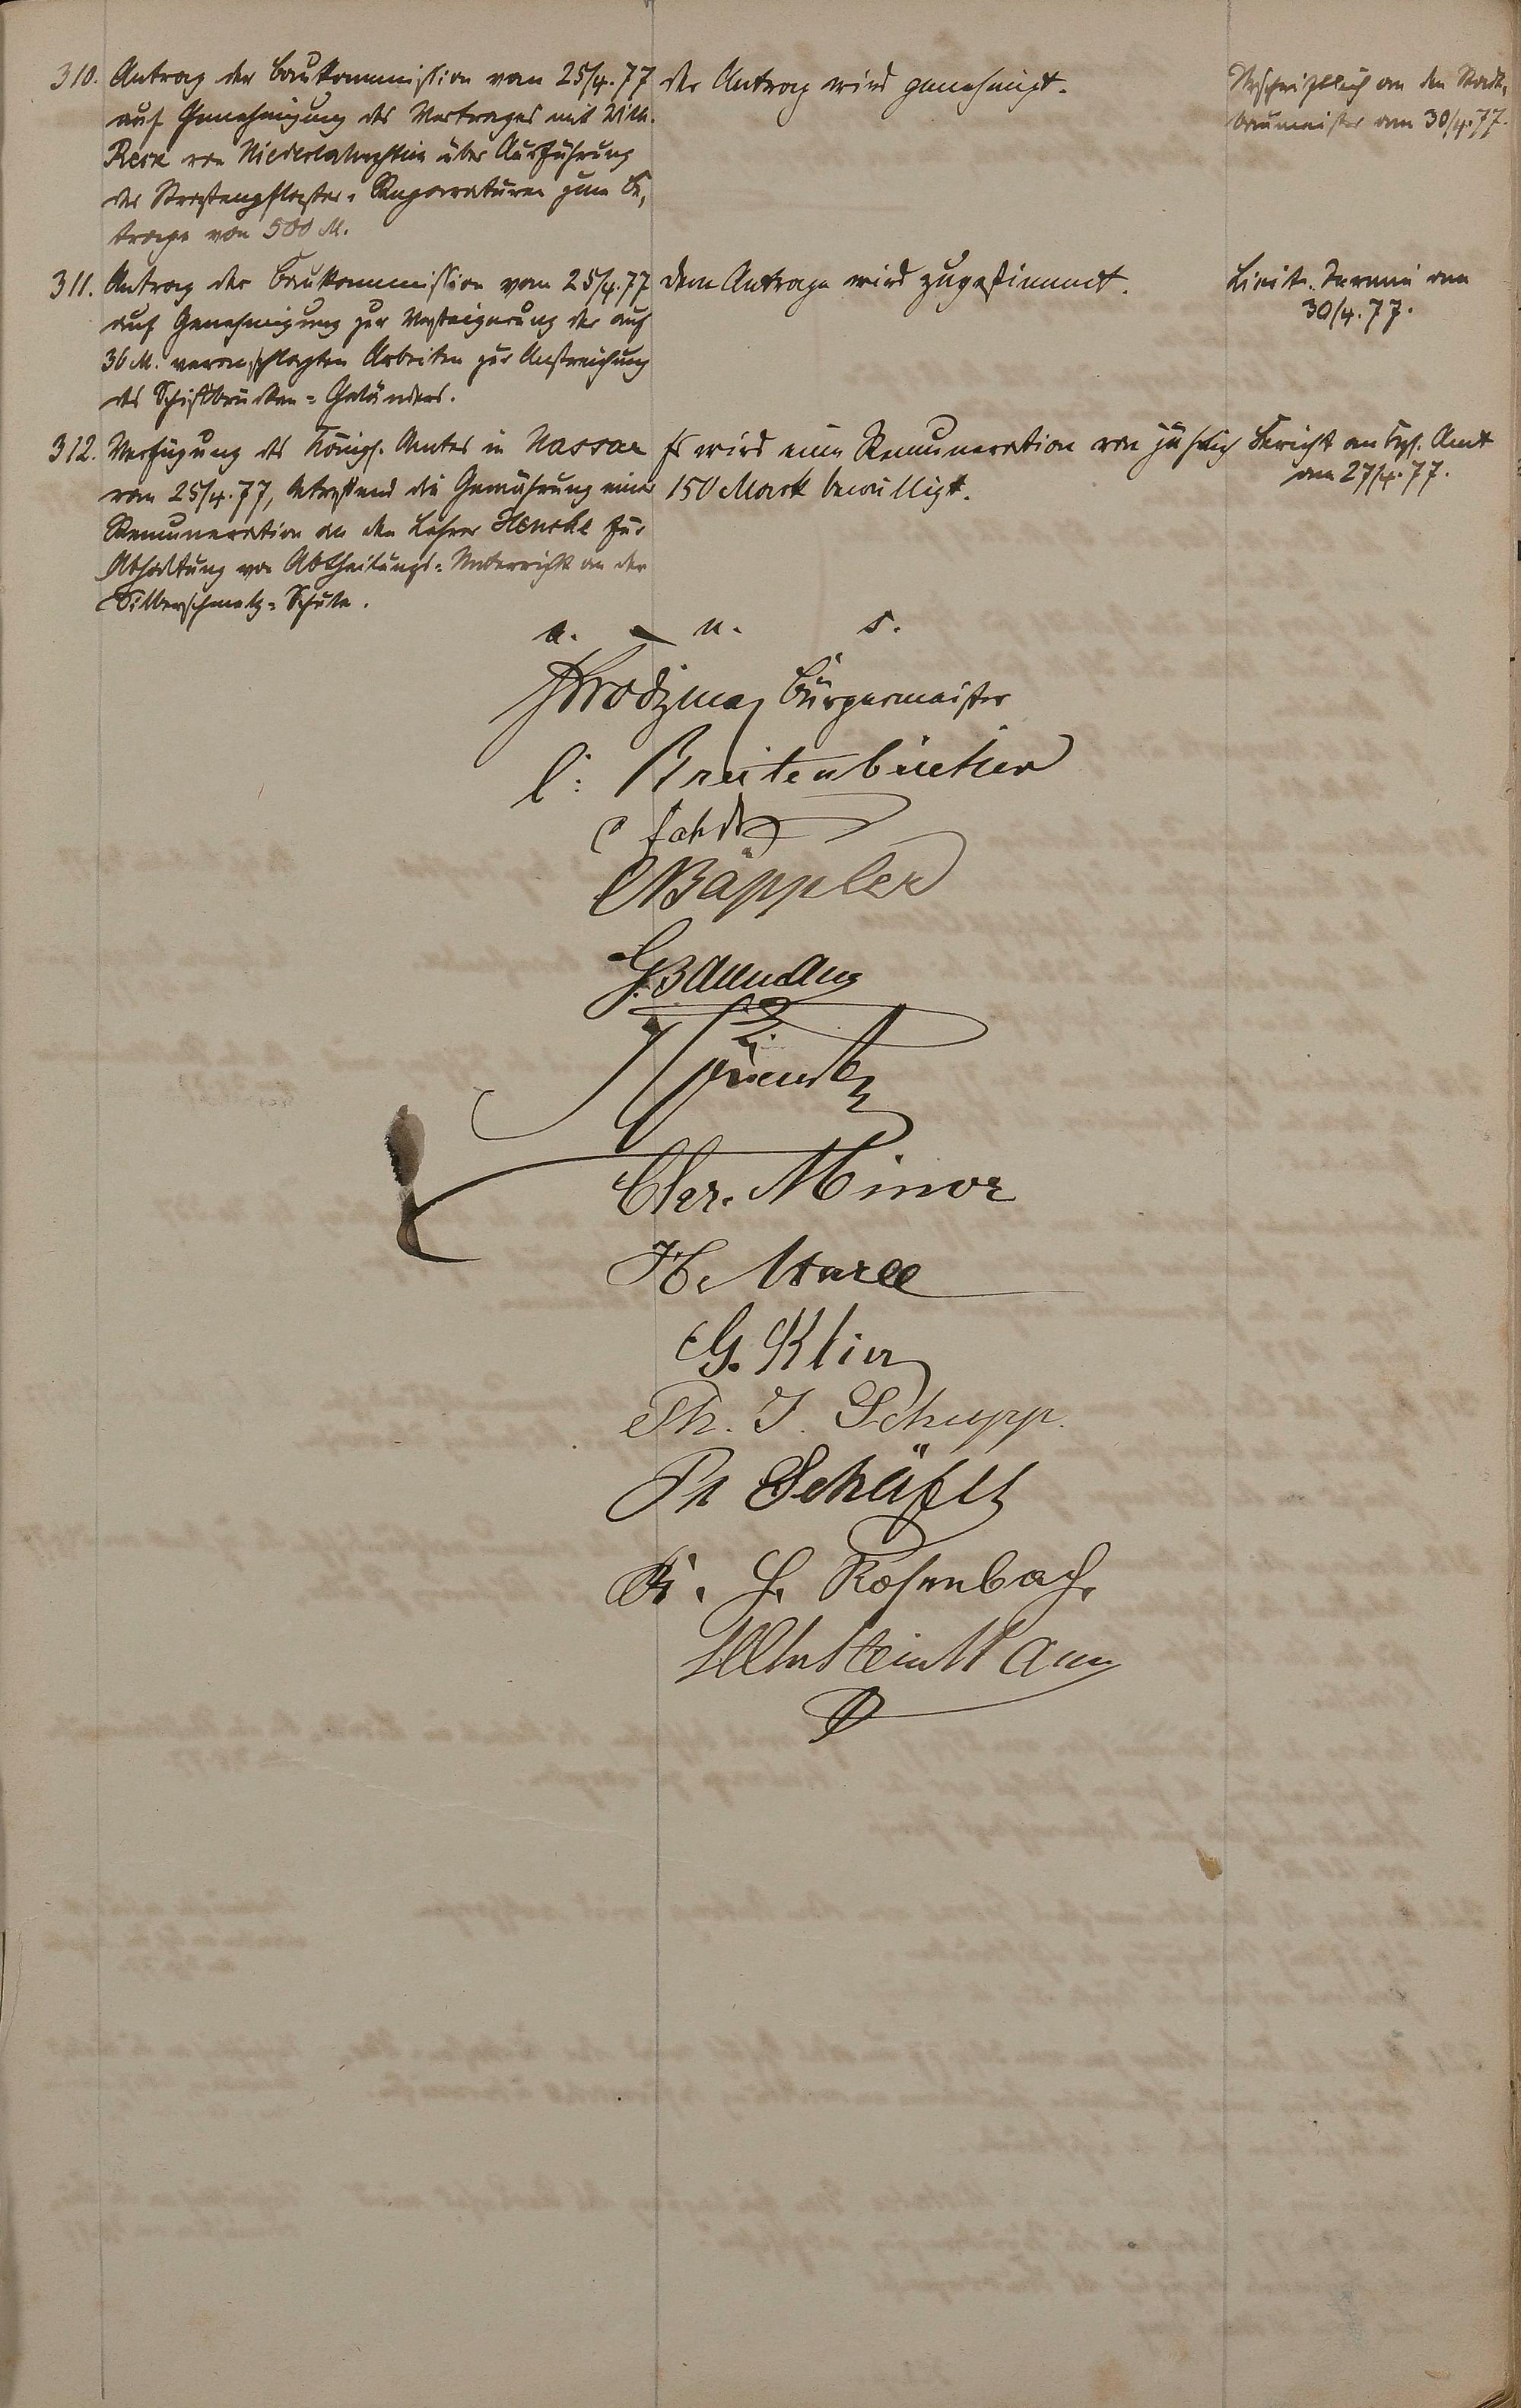 310. Antrag der Baukommission vom 25/4.77
auf Genehmigung des Vertrages mit Wilh.
von Niederlahnstein über Ausführung
der Straßenpflaster-Reparaturen zum Be-
trage von 500 M.
der Antrag wird genehmigt.
an den Stadt-
baumeister am 30/4.77.
311. Antrag der Baukommission vom 25/4.77
auf Genehmigung zur Versteigerung der auf
36 M. veranschlagten Arbeiten zur Anstreichung
des Schiffbrücken-Geländers.
dem Antrage wird zugestimmt.
Termin am
30/4.77.
312. Verfügung des Königl. Amtes in Nassau
vom 25/4.77, betreffend die Gewährung einer
Remuneration an den Lehrer Henche für
Abhaltung von Abtheilungs-Unterricht an der
Silberschmelz-Schule.
Es wird eine Remuneration von jährlich
150 Mark bewilligt.
Bericht an Kgl. Amt
am 27/4.77.
a. u. s.
Bürgermeister
Breitenbücher
C Bäppler
G. Baumann
Chr. Minor
H.
G. Klier
Ph. J. Schupp.
Ph Schäfer
H. Rosenbach.